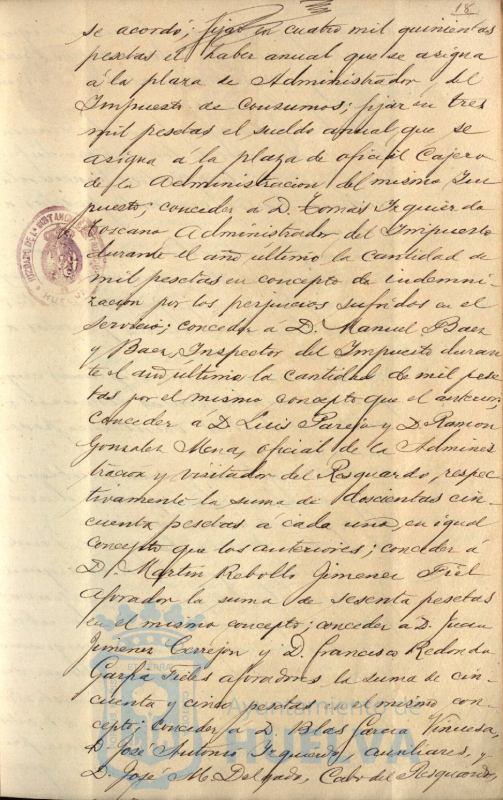 18
se acordó; fijar en cuatro mil quinientas
pesetas el haber anual que se asigna
á la plaza de Administrador del
Impuesto de Consumos; fijar en tres
mil pesetas el sueldo anual que se
asigna á la plaza de oficial Cajero
de la Administracion del mismo Im
puesto; conceder á D. Tomás Izquierdo
Toscano Administrador del Impuesto
durante el año ultimo la cantidad de
mil pesetas en concepto de indemni-
zacion por los perjuicios sufridos en el
servicio; conceder á D. Manuel Baez
y Baez, Inspector del Impuesto duran
te el año ultimo la cantidad de mil pese
tas por el mismo concepto que el anterior;
conceder á D. Luis Parejo y D. Ramon
Gonzalez Mena, oficial de la Adminis
tracion y visitador del Resguardo, respec
tivamente la suma de doscientas cin
cuenta pesetas á cada uno, en igual
concepto que los anteriores; conceder á
D. Martin Rebollo Jimenez Fiel
aforador la suma de sesenta pesetas
en el mismo concepto; conceder á D. Juan
Jimenez Carrejon y D. Francisco Redondo
Garfia Fieles aforadores la suma de cin
cuenta y cinco pesetas en el mismo con
cepto; conceder á D. Blas Garcia Vinuesa,
D. José Antonio Izquierdo, auxiliares, y
D. José M. Delgado, Cabo del Resguardo,
HUELVA
Ayuntamiento de
HUELVA